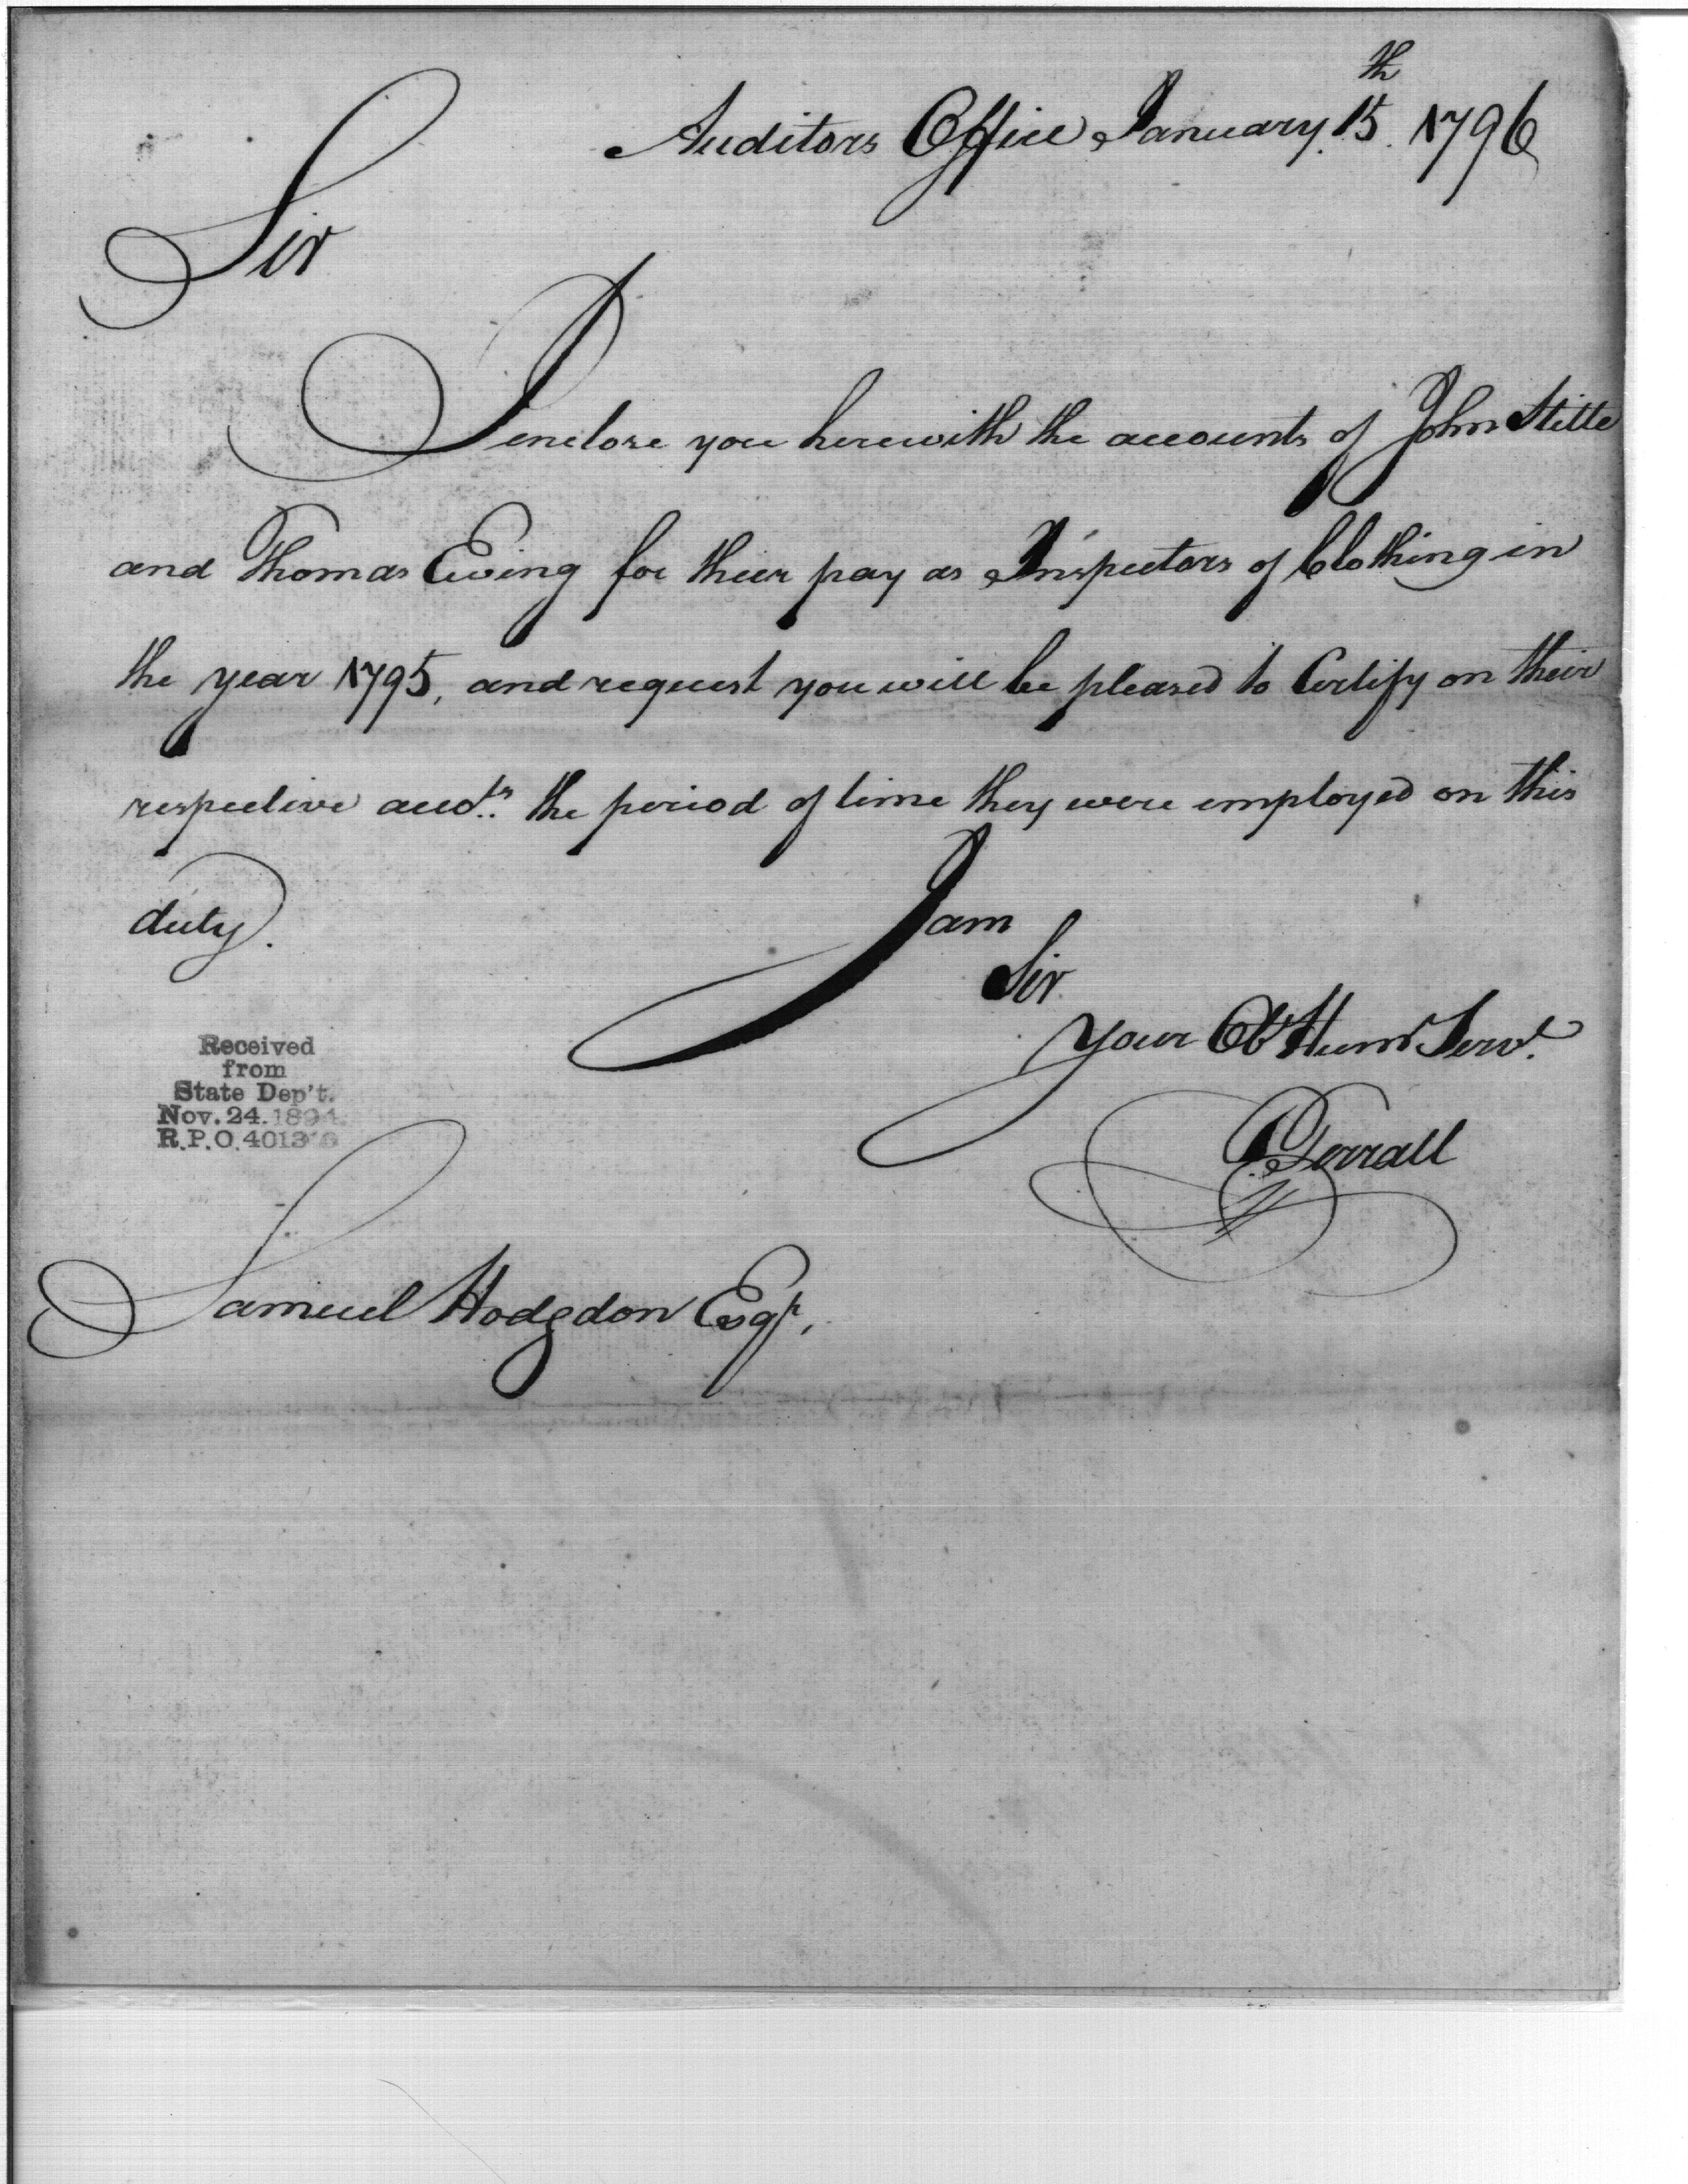 Auditors Office January. 15th. 1796
Sir
I enclose you herewith the accounts of John Stille
and Thomas Ewing for their pay as Inspectors of Clothing in
the year 1795, and request you will be pleased to Certify on their
respective accots. the period of time they were employed on this
duty.
I am
Sir
Your Obt Hume Servt.
Ferrall
Received
from
State Dep't.
Nov. 24. 1894.
R.P.O. 401316
Samuel Hodgdon Esqr.